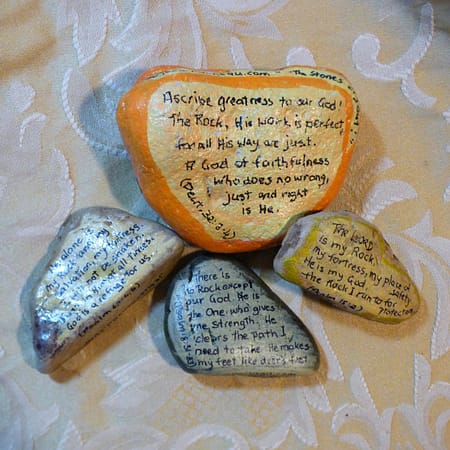 .com - The Stones
Ascribe greatness to our God!
The Rock, His work is perfect,
for all His ways are just.
A God of faithfulness
who does no wrong,
just and right
is He.
(Deut. 32:3-4)
alone
my
salvation, my fortress
not be shaken
in all times.
God is a refuge for us.
There is
no Rock except
our God. He is
the One who gives
me strength. He
clears the path I
need to take. He makes
my feet like deer's feet
The LORD
is my Rock,
my fortress, my place of
safety
He is my God,
the Rock I run to for
protection
(Psalm 18:2)